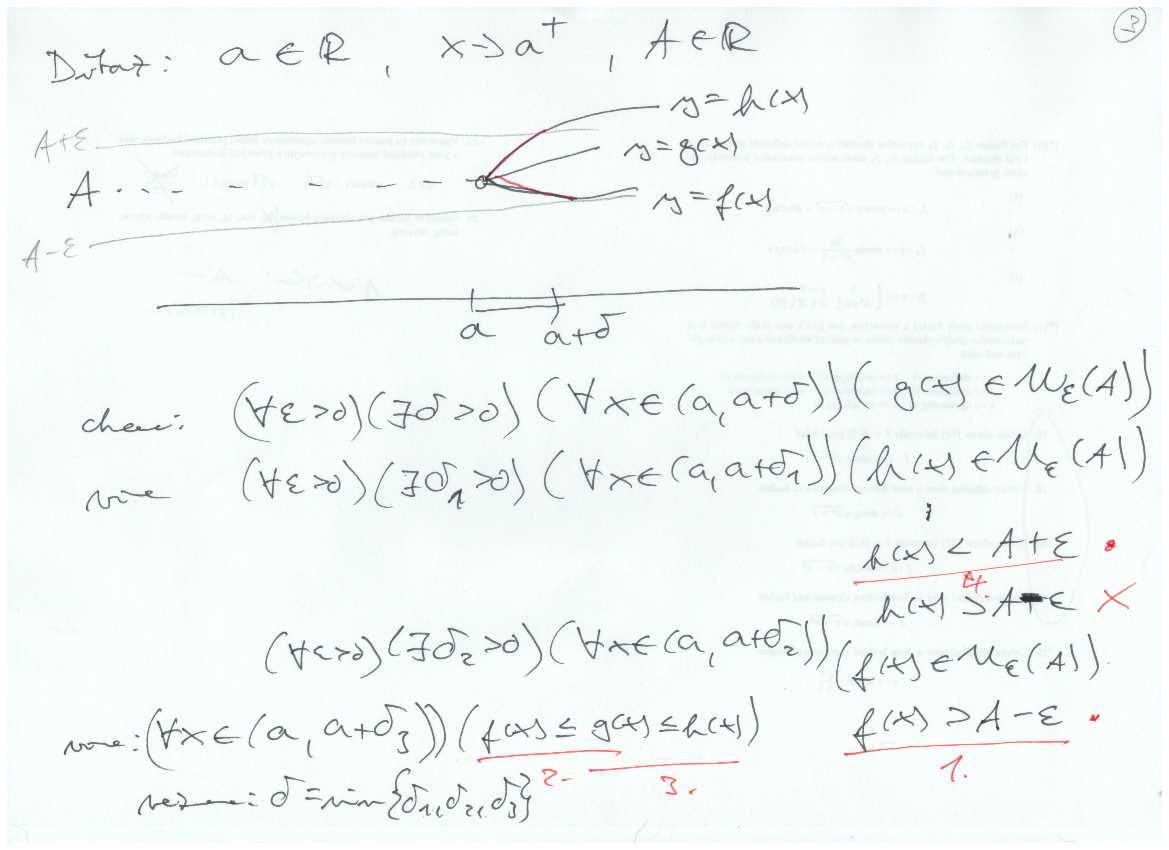 3
Důkaz: a ∈ ℝ, x → a⁺, A ∈ ℝ
y = h(x)
A+ε
y = g(x)
A
y = f(x)
A-ε
a a+δ
chceme: (∀ε>0)(∃δ>0)(∀x∈(a, a+δ))(g(x) ∈ U_ε(A))
víme (∀ε>0)(∃δ₁>0)(∀x∈(a, a+δ₁))(h(x) ∈ U_ε(A))
h(x) < A+ε
4.
h(x) > A-ε ×
(∀ε>0)(∃δ₂>0)(∀x∈(a, a+δ₂))(f(x) ∈ U_ε(A))
víme: (∀x∈(a, a+δ₃))(f(x) ≤ g(x) ≤ h(x)) f(x) > A-ε
2. 3. 1.
vezmeme: δ = min{δ₁, δ₂, δ₃}